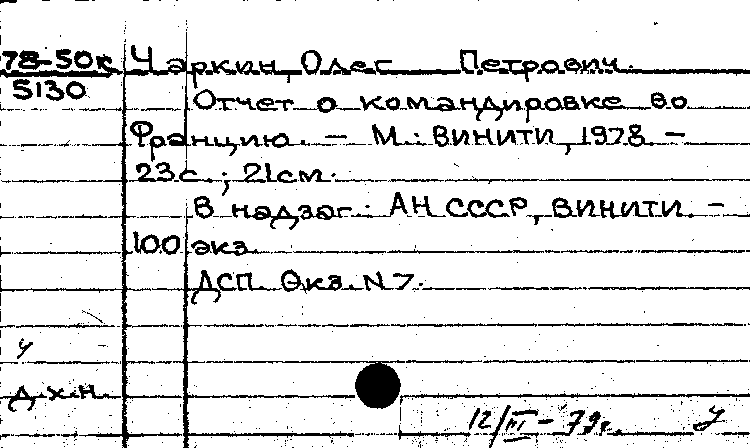 78-50к Чаркин, Олег Петрович.
5130
Отчет о командировке во
Францию. — М.: ВИНИТИ, 1978. —
23 с.; 21 см.
В надзаг.: АН СССР, ВИНИТИ. —
100 экз.
ДСП. Экз. N 7.
ч
д.х.н.
12/III – 79г. У